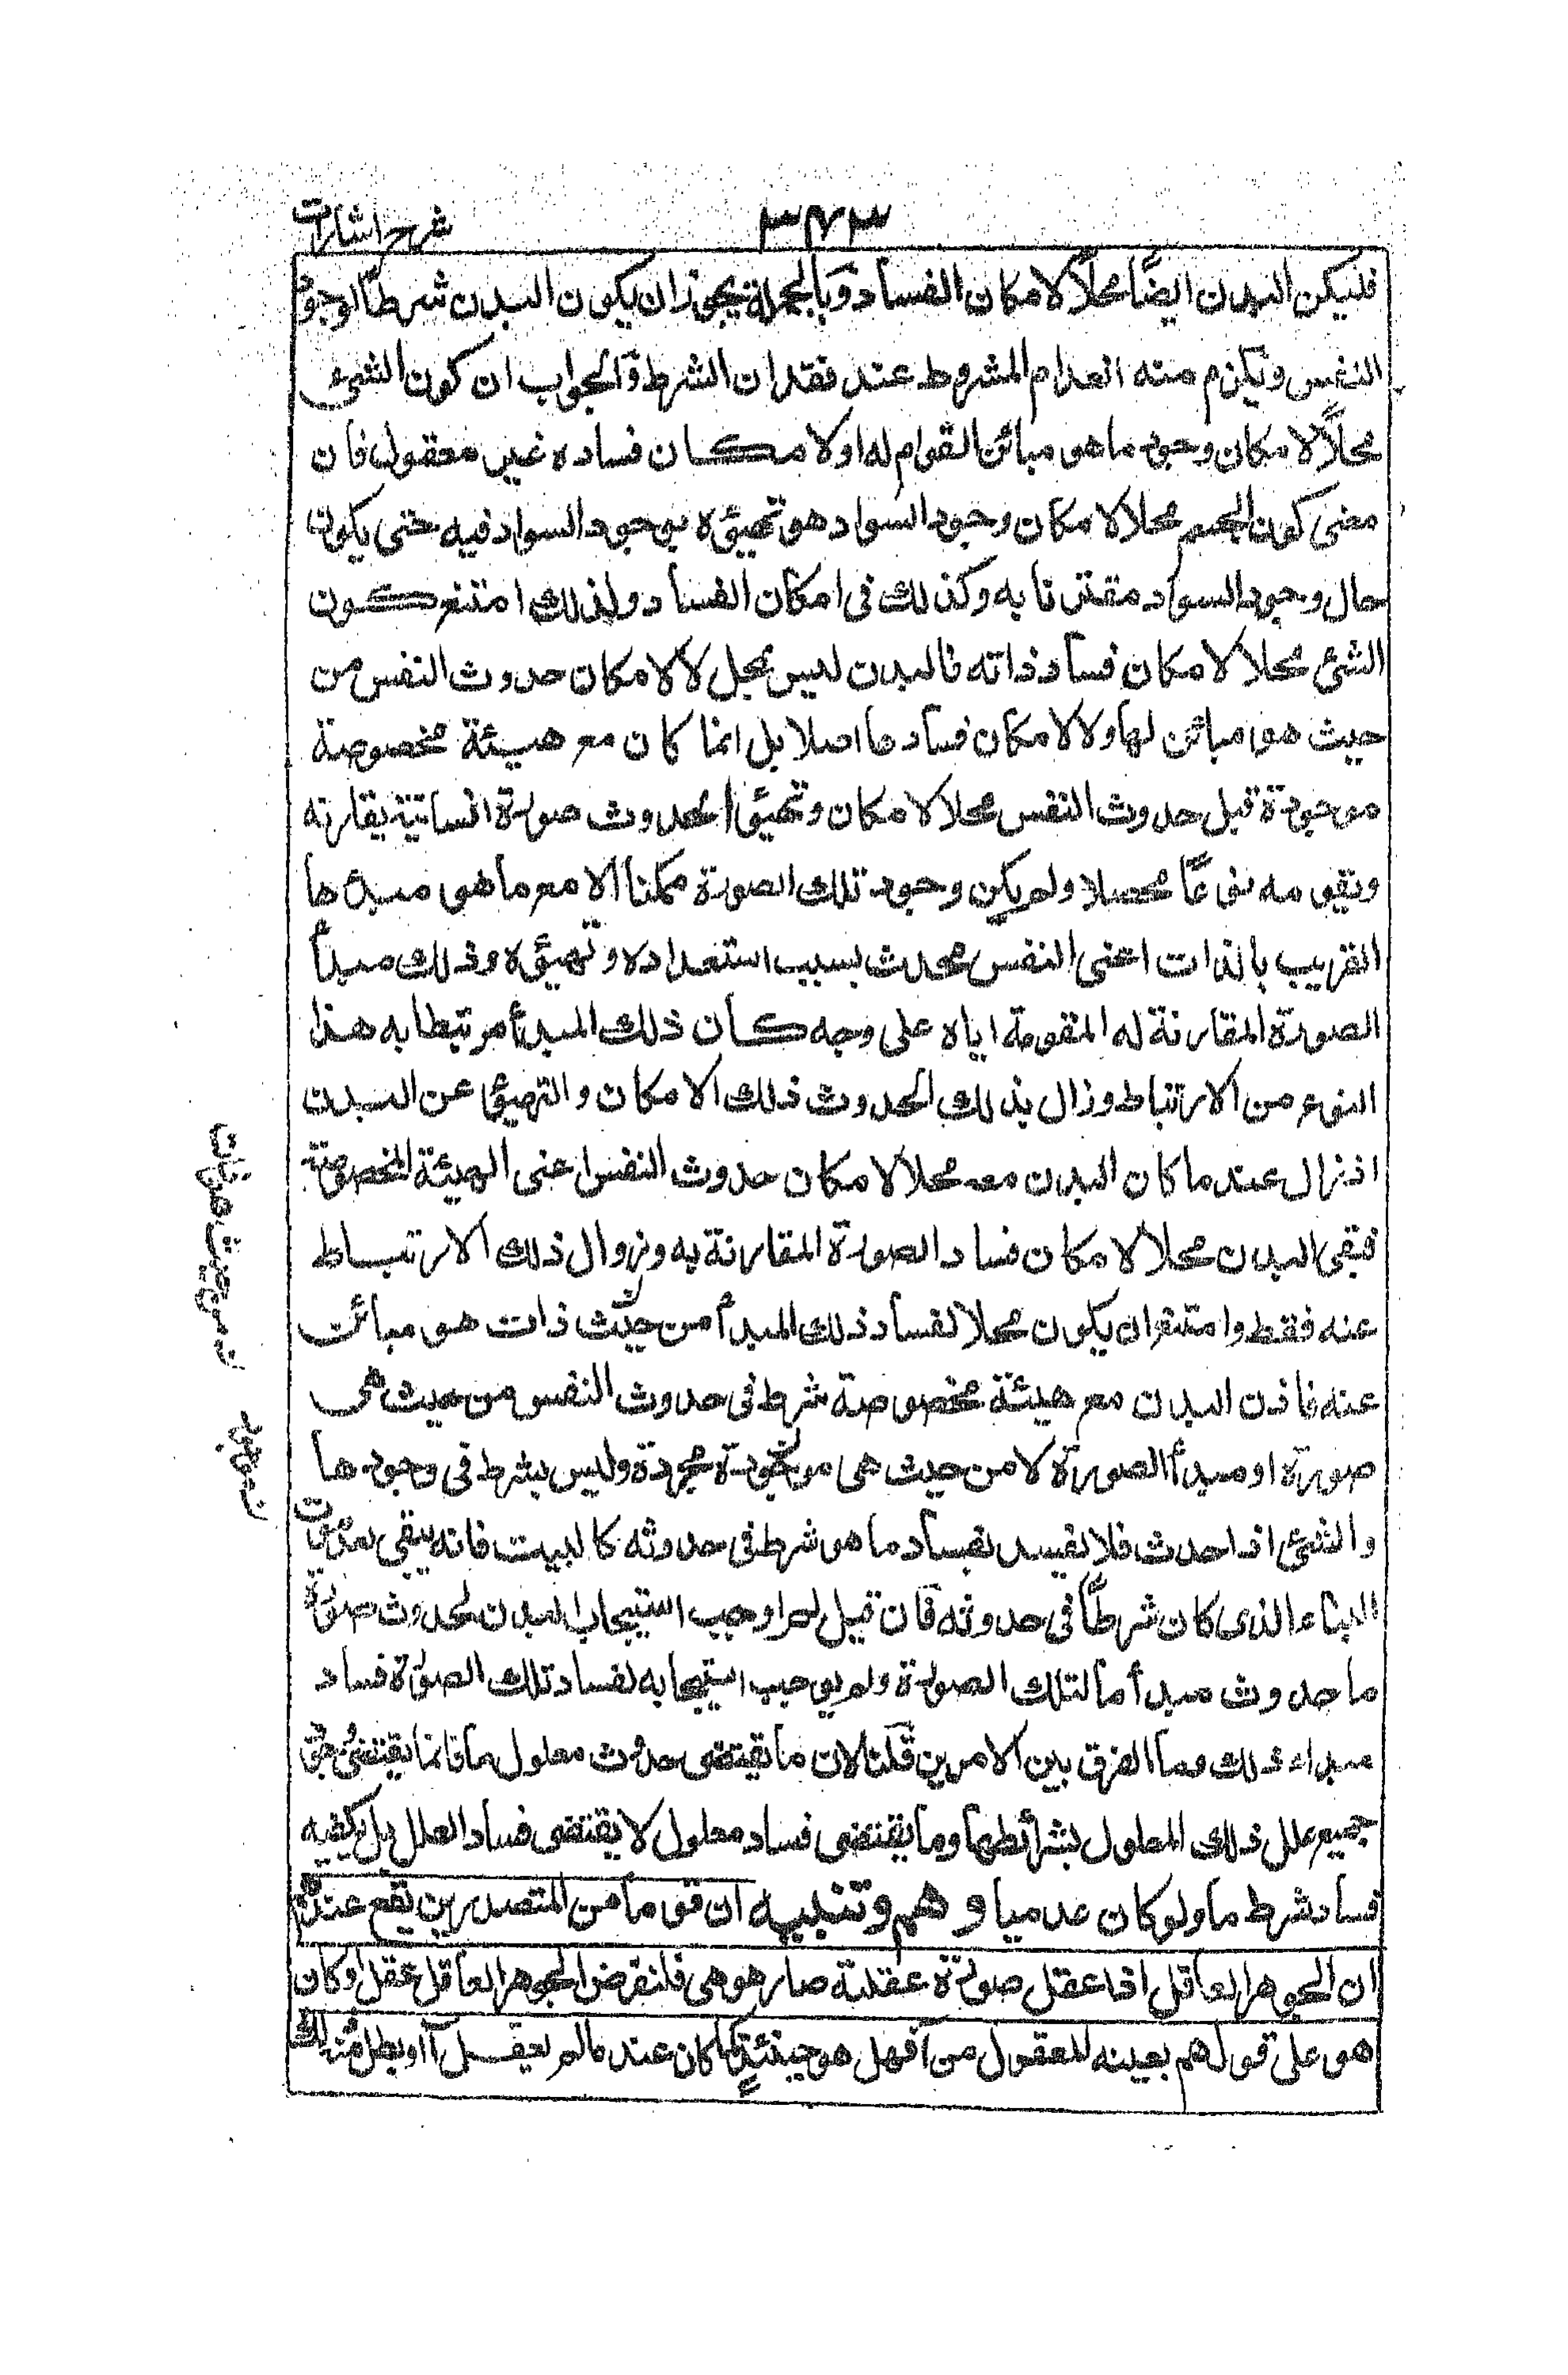 شرح اشارات
٣٧٣
فليكن البدن ايضًا محلاً لامكان الفساد وبالجملة يجوز ان يكون البدن شرطا لوجود
النفس ويلزم منه انعدام المشروط عند فقدان الشرط والجواب ان كون الشئ
محلاً لامكان وجود ما هو مبائن القوام له او لامكان فساده غير معقول فان
معنى كون الجسم محلا لامكان وجود السواد هو تهيؤه لوجود السواد فيه حتى يكون
حال وجود السواد مقترنا به وكذلك فى امكان الفساد ولذلك امتنع كون
الشئ محلا لامكان فساد ذاته فالبدن ليس بمحل لا لامكان حدوث النفس من
حيث هو مبائن لها ولا لامكان فسادها اصلا بل انما كان مع هيئة مخصوصة
موجودة قبل حدوث النفس محلا لامكان وتهيؤ لحدوث صورة انسانية يقارنه
ويقومه نوعًا محصلا ولم يكن وجود تلك الصورة ممكنا الا مع ما هو مبدءها
القريب بالذات اعنى النفس محدث بسبب استعداده وتهيؤه وذلك مبدأ
الصورة المقارنة له المقومة اياه على وجه كان ذلك المبدأ مرتبطا به هذا
النوع من الارتباط وزال بذلك الحدوث ذلك الامكان والتهيؤ عن البدن
اذ زال عند ما كان البدن معه محلا لامكان حدوث النفس اعنى الهيئة المخصوصة
فبقى البدن محلا لامكان فساد الصورة المقارنة به وزوال ذلك الارتباط
عنه فقط وامتنع ان يكون محلا لفساد ذلك المبدأ من حيث ذات هو مبائن
عنه فاذن البدن مع هيئة مخصوصة شرط فى حدوث النفس من حيث هى
صورة او مبدأ الصورة لا من حيث هى موجودة مجردة وليس بشرط فى وجودها
والشئ اذا حدث فلا يفسد بفساد ما هو شرط فى حدوثه كالبيت فانه يبقى بعد موت
البناء الذى كان شرطًا فى حدوثه فان قيل لم اوجب استيجاب البدن لحدوث صورة
ما حدوث مبدأ ما لتلك الصورة ولم يوجب استيجابه لفساد تلك الصورة فساد
مبداء ذلك وما الفرق بين الامرين قلنا لان ما يقتضى حدوث معلول ما فانما يقتضى وجود
جميع علل ذلك المعلول بشرائطها وما يقتضى فساد معلول لا يقتضى فساد العلل بل يكفيه
فساد شرط ما ولو كان عدميا وهم وتنبيه ان قوما من المتصدرين يقع عندهم
ان الجوهر العاقل اذا عقل صورة عقلية صار هو هى فلنفرض الجوهر العاقل عقل ا وكان
هو على قولهم بعينه المعقول من آ فهل هو حينئذٍ كما كان عند ما لم يعقل آ او بطل منه ذلك